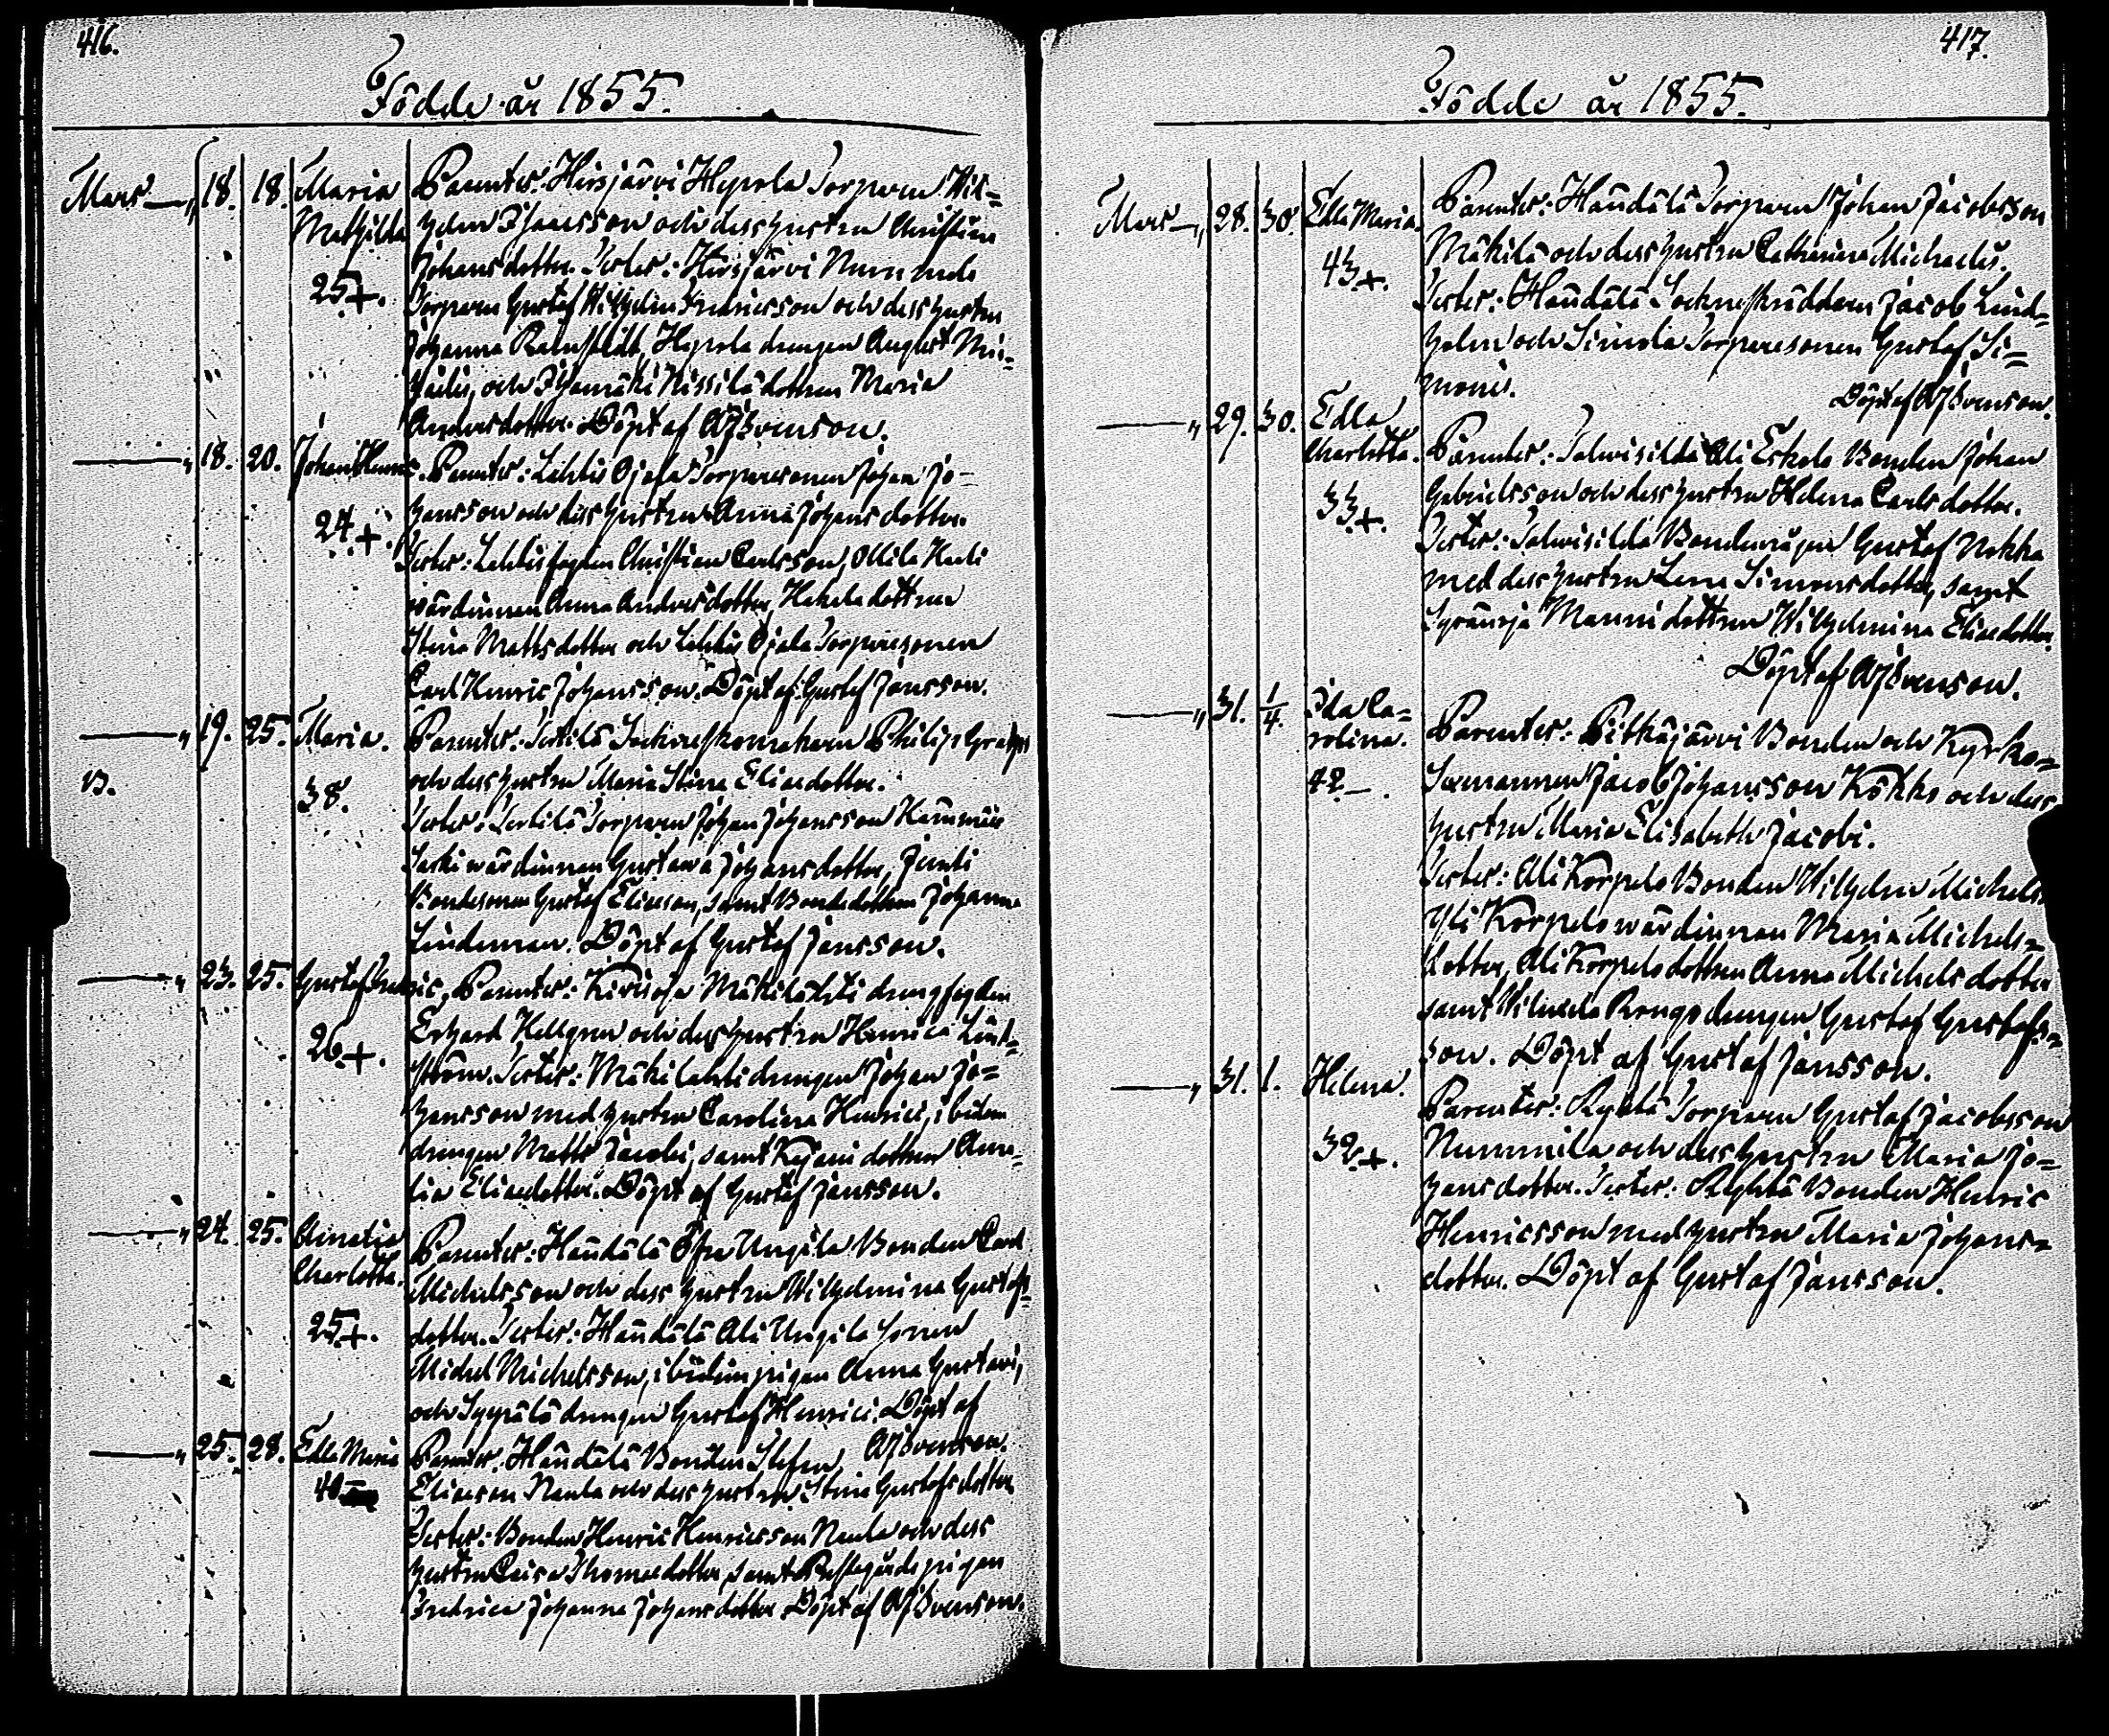 416.
Födde år 1855.
Mars — „ 18. 18. Maria Parenter: Hirsjärvi Hepola Torparen Wil=
Mathilda helm Thomasson och dess hustru Christina
Johansdotter. Testes: Hirsjärvi Nummela
25+. Torparen Gustaf Wilhelm Fredricsson och dess hustru
Johanna Hepola drengen August
och Nissilä dottren Maria
Andersdotter. Döpt af AJSvenson.
— „ 18. 20. Johan Henric. Parenter: Lahtis Ojala Torparesonen Johan Jo-
hansson och dess hustru Anna Johansdotter.
24+. Testes: Lahtis fogden Christian Carlsson, Ollila
wärdinnan Anna Andersdotter, dottren
Stina Mattsdotter och Lahtis Ojala Torparesonen
Carl Henric Johansson. Döpt af Gustaf Jansson.
— „ 19. 25. Maria. Parenter: Sockneskomakaren Philip
B. och dess hustru Maria Stina Eliaedotter.
38. Testes: Torparen Johan Johansson
wärdinnan Gustava Johansdotter,
Bondesonen Gustaf Eliasson, samt Bondedottren Johanna
Lindeman. Döpt af Gustaf Jansson.
— „ 23. 25. Gustaf Fredric. Parenter: Mäkilahti drengfogden
26+. Erhard Hellgren och dess hustru Henrica Lind=
ström. Testes: Mäkilahti drengen Johan Jo=
hansson med hustru Carolina Henrici, ibidem
drengen Matts Jacobi, samt dottren Ama=
lia Eliaedotter. Döpt af Gustaf Jansson.
— „ 24. 25. Amalia Parenter: Haudälä Öfre Ungila Bonden Carl
Charlotta. Michelsson och dess hustru Wilhelmina Gustafs=
25+. dotter. Testes: Haudälä Ali Ungila sonen
Michel Michelsson, ibidem pigan Anna Gustavi,
och drengen Gustaf Henrici. Döpt af
AJSvenson.
— „ 25. 28. Edla Maria Parenter: Haudälä Bonden Stefan
40 Eliasson Naula och dess hustru Stina Gustafsdotter
Testes: Bonden Henric Henricsson Naula och dess
hustru Caisa Thomaedotter, samt Prestgårds pigan
Fredrica Johanna Johansdotter. Döpt af AJSvenson.
417.
Födde år 1855.
Mars — „ 28. 30. Edla Maria. Parenter: Haudälä Torparen Johan Jacobsson
Mäkilä och dess hustru Catharina Michaelis.
43+. Testes: Haudälä Sockneskräddaren Jacob Lind=
holm och Simola Torparesonen Gustaf Si=
monis. Döpt af AJSvenson.
— „ 29. 30. Edla
Charlotta. Parenter: Talwisilda Ali Erkola Bonden Johan
33+. Gabrielsson och dess hustru Helena Carlsdotter.
Testes: Talwisilda Bondemågen Gustaf Nokka
med dess hustru Lena Simonsdotter, samt
Manni dottren Wilhelmina Eliaedotter.
Döpt af AJSvenson.
— „ 31. 1/4. Ida Ca=
rolina. Parenter: Pitkäjärvi Bonden och Kyrko=
42 —. Sexmannen Jacob Johansson Kökkö och dess
hustru Maria Elisabeth Jacobi.
Testes: Ali Korpela Bonden Wilhelm
Yli Korpela wärdinnan Maria Michels=
dotter, Ali Korpela dottren Anna Michelsdotter
samt drengen Gustaf Gustafs=
son. Döpt af Gustaf Jansson.
— „ 31. 1. Helena. Parenter: Torparen Gustaf Jacobsson
32+. Nummila och dess hustru Maria Jo=
hansdotter. Testes: Bonden Henric
Henricsson med hustru Maria Johans=
dotter. Döpt af Gustaf Jansson.